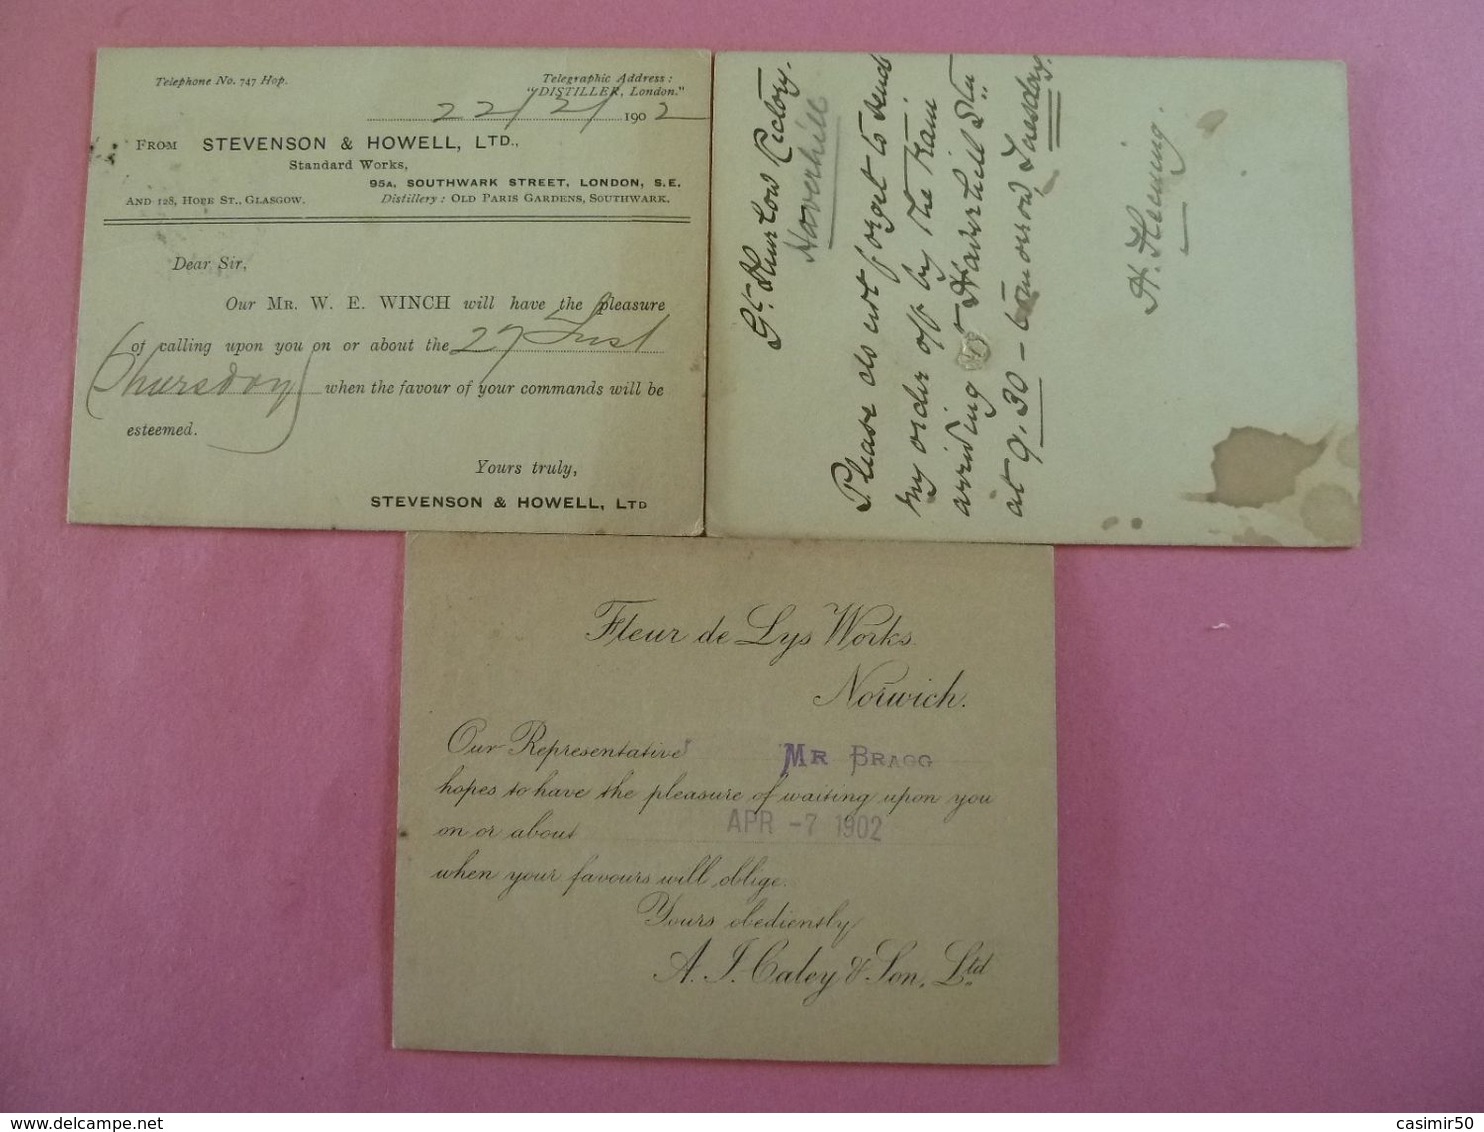 Telephone No. 747 Hop.
Telegraphic Address:
"DISTILLER, London."
22/2/1902
FROM STEVENSON & HOWELL, LTD.,
Standard Works,
95A, SOUTHWARK STREET, LONDON, S.E.
AND 128, HOPE ST., GLASGOW.
Distillery: OLD PARIS GARDENS, SOUTHWARK.
Dear Sir,
Our MR. W. E. WINCH will have the pleasure
of calling upon you on or about the 27 Inst
(Thursday) when the favour of your commands will be
esteemed.
Yours truly,
STEVENSON & HOWELL, LTD
Gt. Thurlow Rectory.
Haverhill
Please do not forget to send
my order off by the train
arriving at Haverhill Stn
at 9.30 – tomorrow, Tuesday.
H. Fleming.
Fleur de Lys Works
Norwich.
Our Representative MR BRAGG
hopes to have the pleasure of waiting upon you
on or about APR -7 1902
when your favours will oblige.
Yours obediently
A. J. Caley & Son, Ltd
casimir50